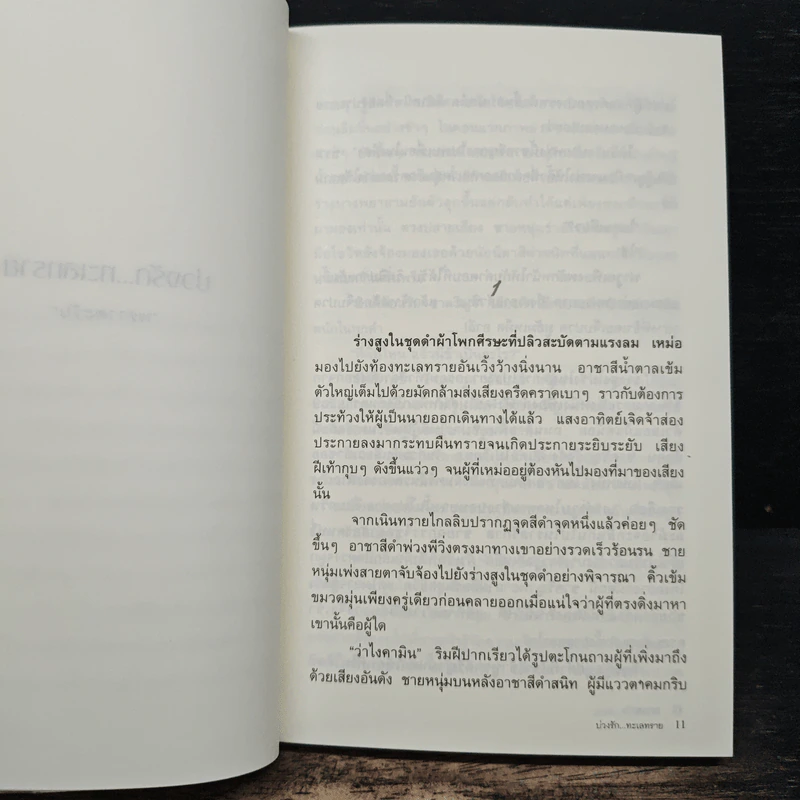 1
ร่างสูงในชุดดำผ้าโพกศีรษะที่ปลิวสะบัดตามแรงลม เหม่อ
มองไปยังท้องทะเลทรายอันเวิ้งว้างนิ่งนาน อาชาสีน้ำตาลเข้ม
ตัวใหญ่เต็มไปด้วยมัดกล้ามส่งเสียงครืดคราดเบาๆ ราวกับต้องการ
ประท้วงให้ผู้เป็นนายออกเดินทางได้แล้ว แสงอาทิตย์เจิดจ้าส่อง
ประกายลงมากระทบผืนทรายจนเกิดประกายระยิบระยับ เสียง
ฝีเท้ากุบๆ ดังขึ้นแว่วๆ จนผู้ที่เหม่ออยู่ต้องหันไปมองที่มาของเสียง
นั้น
จากเนินทรายไกลลิบปรากฏจุดสีดำจุดหนึ่งแล้วค่อยๆ ชัด
ขึ้นๆ อาชาสีดำพ่วงพีวิ่งตรงมาทางเขาอย่างรวดเร็วร้อนรน ชาย
หนุ่มเพ่งสายตาจับจ้องไปยังร่างสูงในชุดดำอย่างพิจารณา คิ้วเข้ม
ขมวดมุ่นเพียงครู่เดียวก่อนคลายออกเมื่อแน่ใจว่าผู้ที่ตรงดิ่งมาหา
เขานั้นคือผู้ใด
"ว่าไงคามิน" ริมฝีปากเรียวได้รูปตะโกนถามผู้ที่เพิ่งมาถึง
ด้วยเสียงอันดัง ชายหนุ่มบนหลังอาชาสีดำสนิท ผู้มีแววตาคมกริบ
บ่วงรัก...ทะเลทราย 11